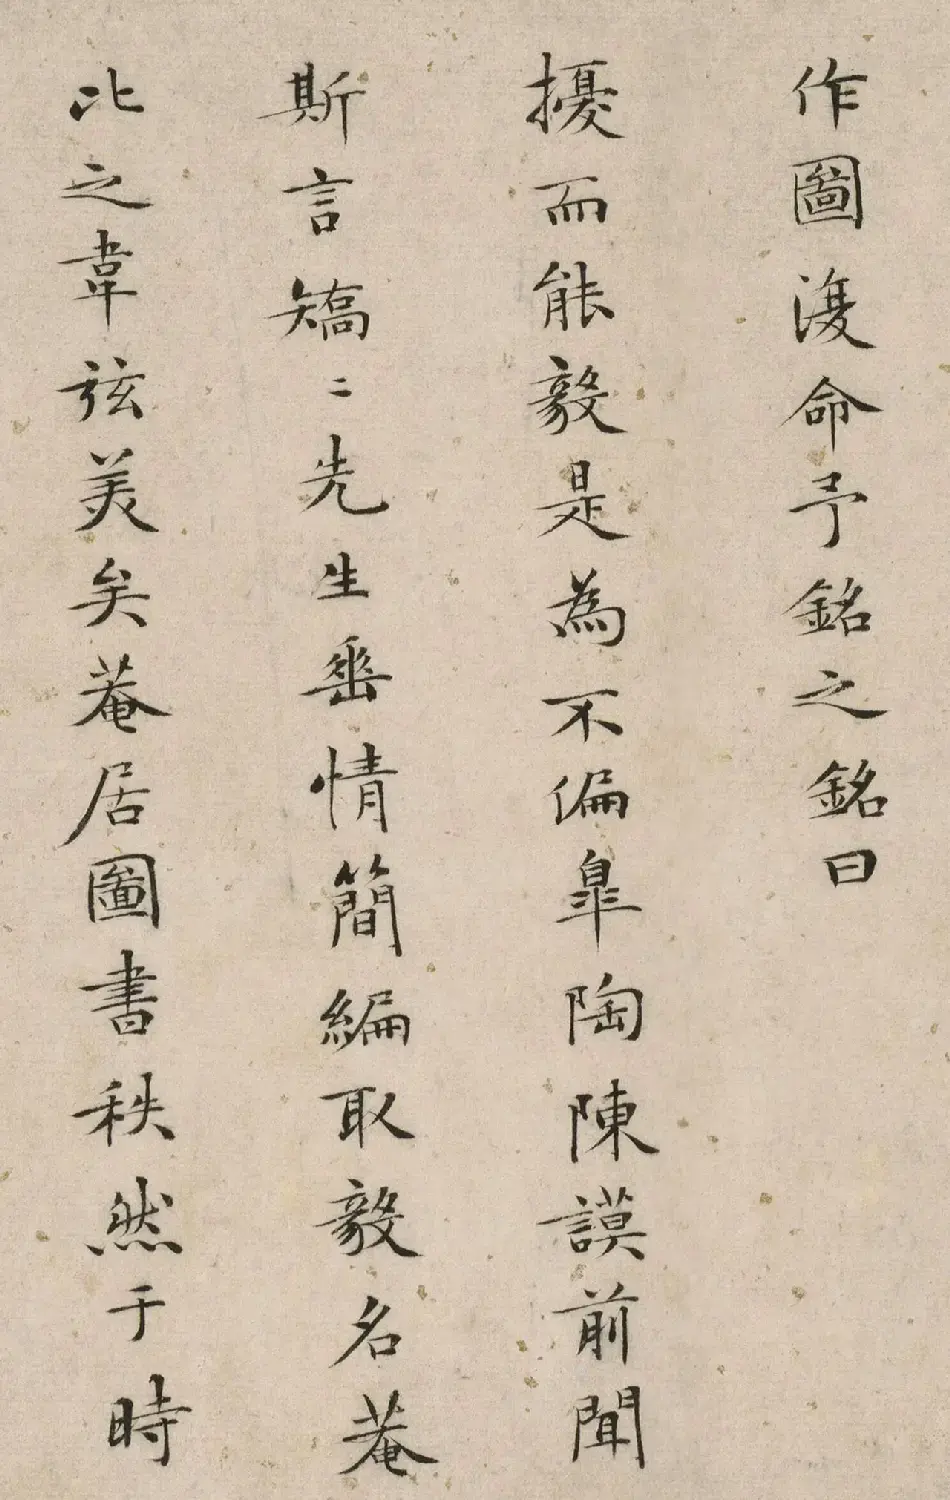 作圖復命予銘之銘曰
擾而能毅是為不偏皐陶陳謨前聞
斯言矯〻先生垂情簡編取毅名菴
比之韋弦美矣菴居圖書秩然于時